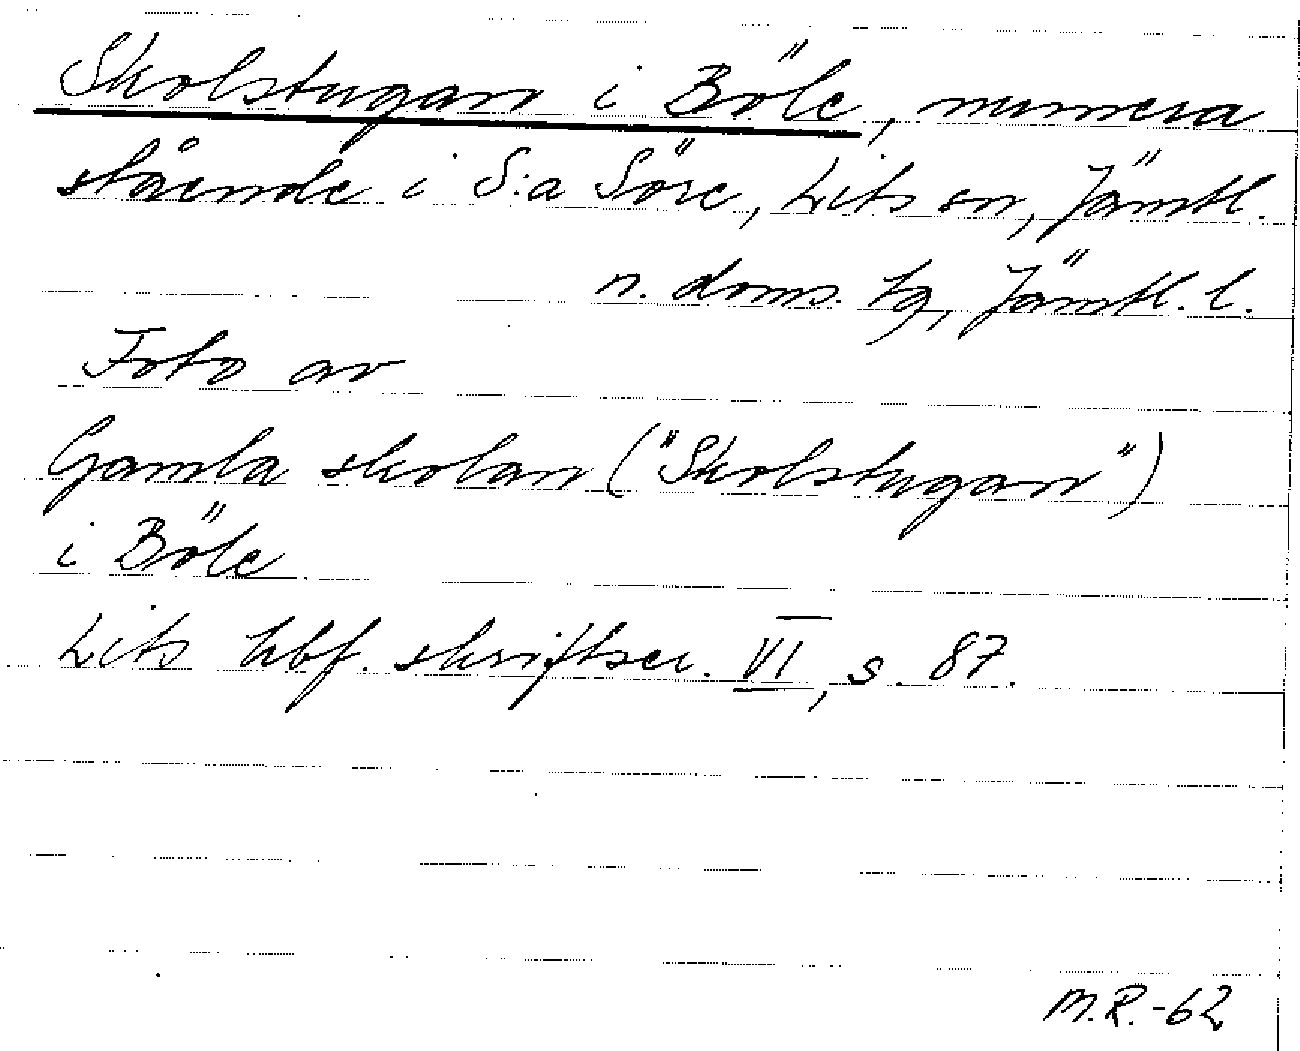 Skolstugan i Böle, numera
stående i S:a Söre, Lits sn, Jämtl.
n. doms. hg, Jämtl. l.
Foto av
Gamla skolan ("Skolstugan")
i Böle
Lits hbf. skriftser. VI, s. 87.
M.R.-62